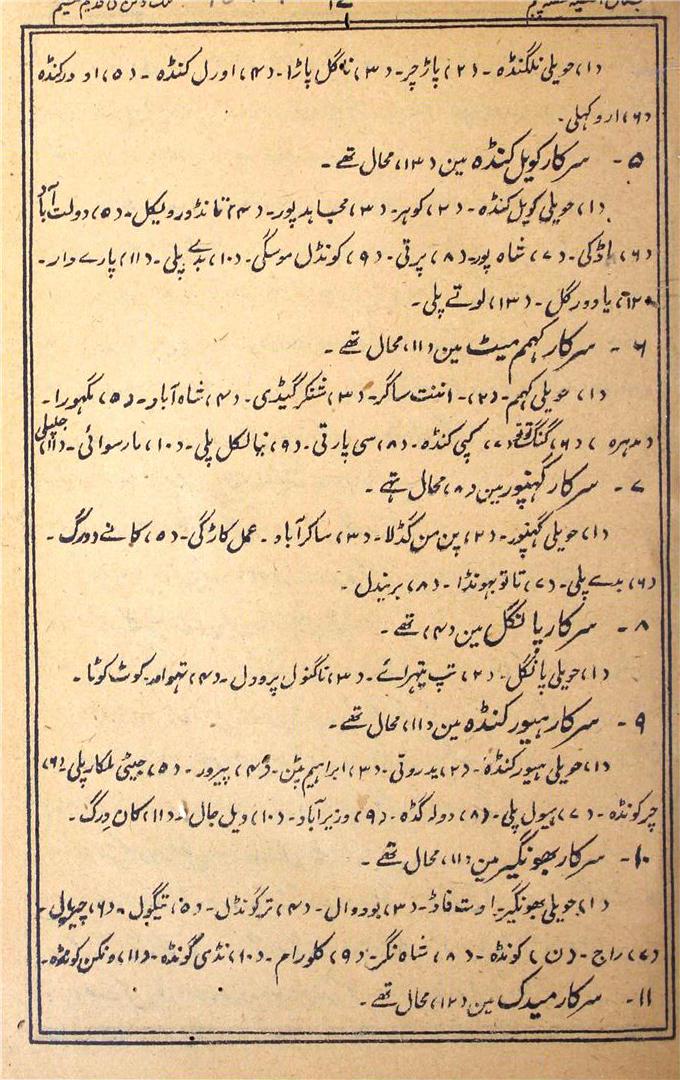 ۱۷
(۱) حویلی نلگنڈہ - (۲) پاڑچر - (۳) نہ گل پاڑا - (۴) اورل کنڈہ - (۵) او ورکنڈہ
(۶) اروکہلی -
۵ - سرکار کویل کنڈہ مین (۱۳) محال تھے -
(۱) حویلی کویل کنڈہ - (۲) کوہر - (۳) مجاہد پور - (۴) تانڈور ویکل - (۵) دولت آباد
(۶) باڈکی - (۷) شاہ پور - (۸) پرتی - (۹) کونڈل موسگی - (۱۰) بڈے پلی - (۱۱) پارے وار -
(۱۲) یادورگل - (۱۳) لوتے پلی -
۶ - سرکار کہم میٹ مین (۱۱) محال تھے -
(۱) حویلی کہم - (۲) - اننت ساگر - (۳) شنکر گیڈی - (۴) شاہ آباد - (۵) بگہورا -
(مدہرہ) (۶) گنگ (۷) کپی کنڈہ - (۸) سی پارتی - (۹) نیالنکل پلی - (۱۰) مارسوائی - (۱۱) جیپلی
۷ - سرکار گہنپور مین (۸) محال تہے -
(۱) حویلی گہنپور - (۲) پن من گڈلا - (۳) ساکر آباد - عمل کاڑگی - (۵) کانے دورگ -
(۶) بدے پلی - (۷) تاتو بہونڈا - (۸) برنیدل -
۸ - سرکار پانگل مین (۴) تھے -
(۱) حویلی پانگل - (۲) تپ پتہرائے - (۳) ناگنول پرودل - (۴) تہوامہ کوٹ کوٹا -
۹ - سرکار ہیور کنڈہ مین (۱۱) محال تھے -
(۱) حویلی ہیور کنڈہ - (۲) یدروتی - (۳) ابراہیم پٹن - (۴) پیرور - (۵) جیٹی لمکار پلی - (۶)
چرکونڈہ - (۷) ہیول پلی - (۸) دولہ گڈہ - (۹) وزیر آباد - (۱۰) ویل جال - (۱۱) کان درگ -
۱۰ - سرکار بھونگیر مین (۱۱) محال تھے -
(۱) حویلی بھونگیر - اوت فاڈ - (۳) بودوال - (۴) ترگونڈل - (۵) تیگول - (۶) چیرال -
(۷) راج - (ن) کونڈہ - (۸) شاہ نگر - (۹) کلورام - (۱۰) نڈی گونڈہ - (۱۱) ونکن کونڈہ -
۱۱ - سرکار میدک مین (۱۲) محال تھے -